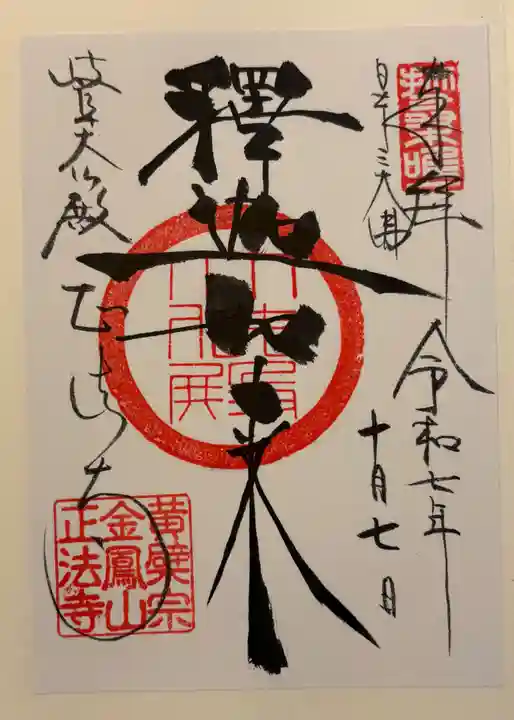 奉拝
日本三大佛
令和七年
十月七日
釋迦如来
岐阜大仏殿
正法寺
黄檗宗
金鳳山
正法寺